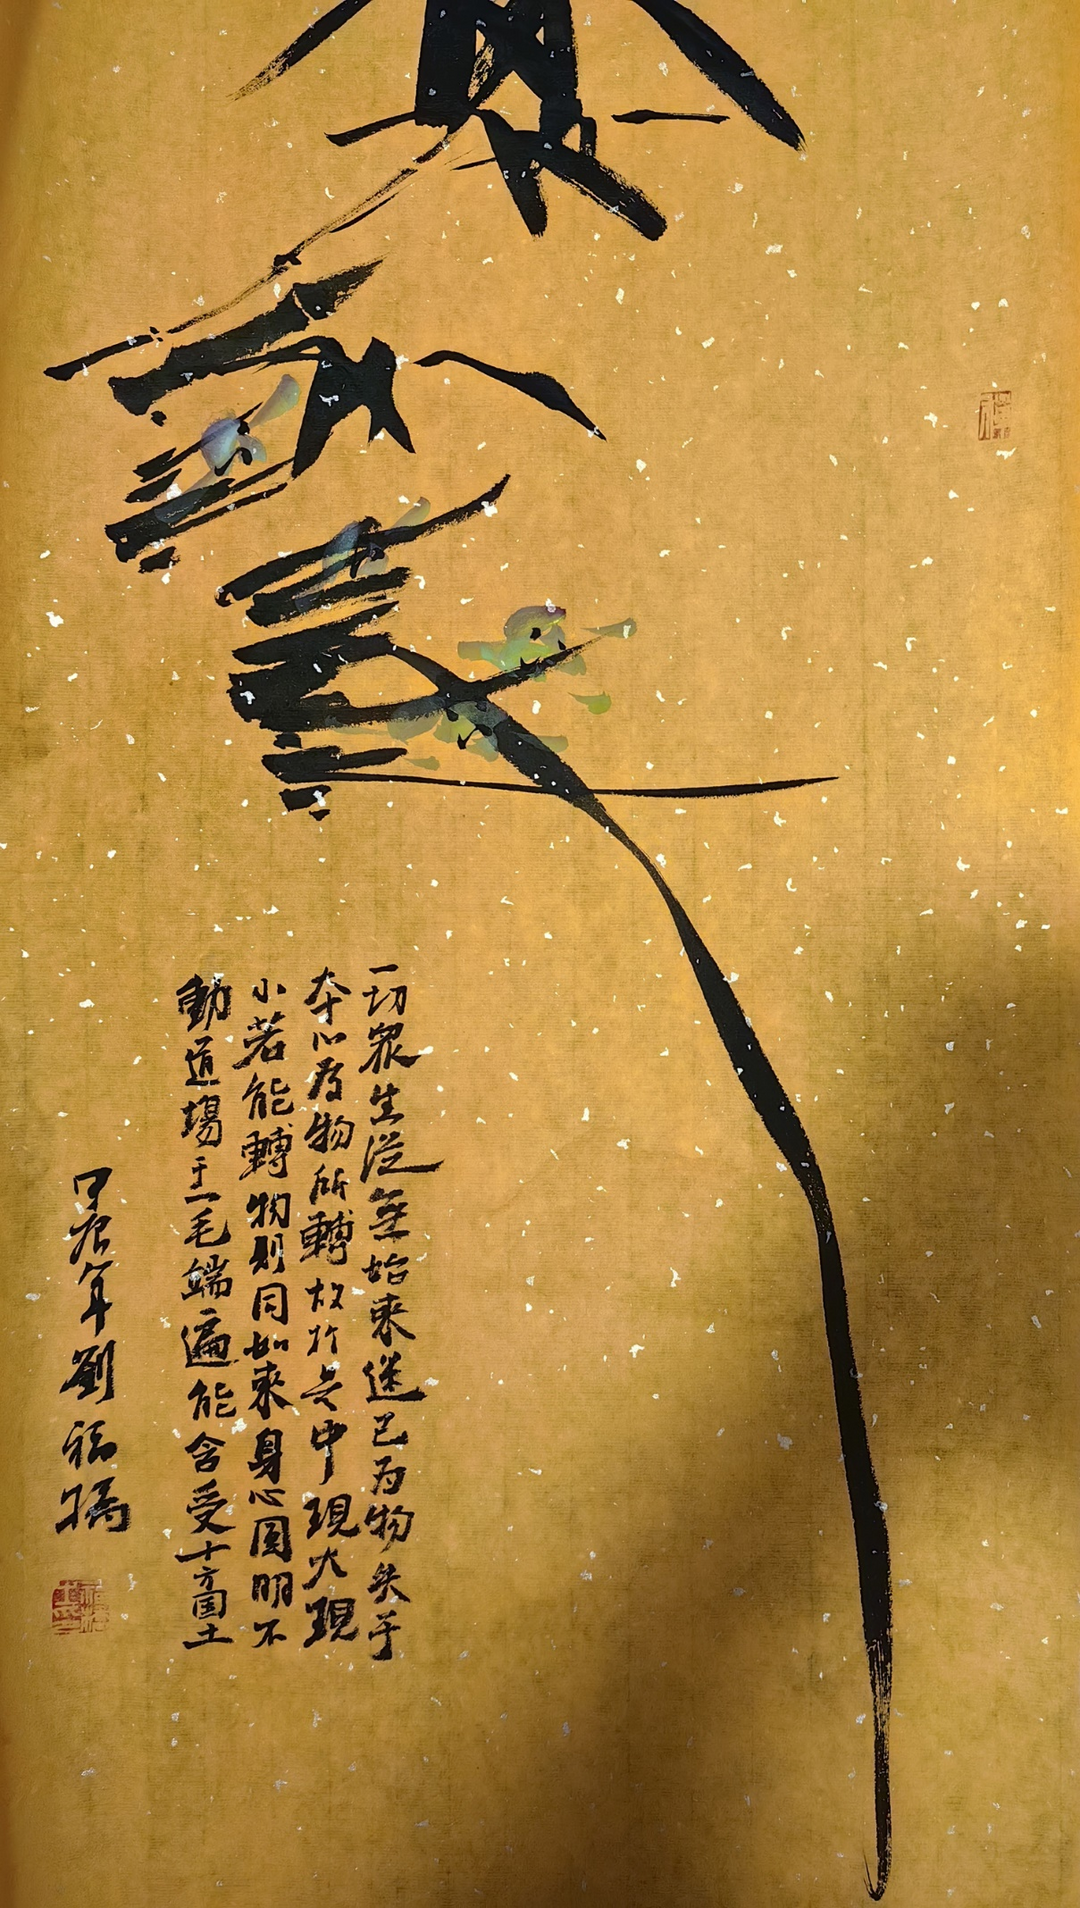 一切眾生從無始來迷己为物失于
本心為物所轉故於是中現大現
小若能轉物則同如來身心圓明不
動道場于一毛端遍能含受十方国土
甲辰年劉福